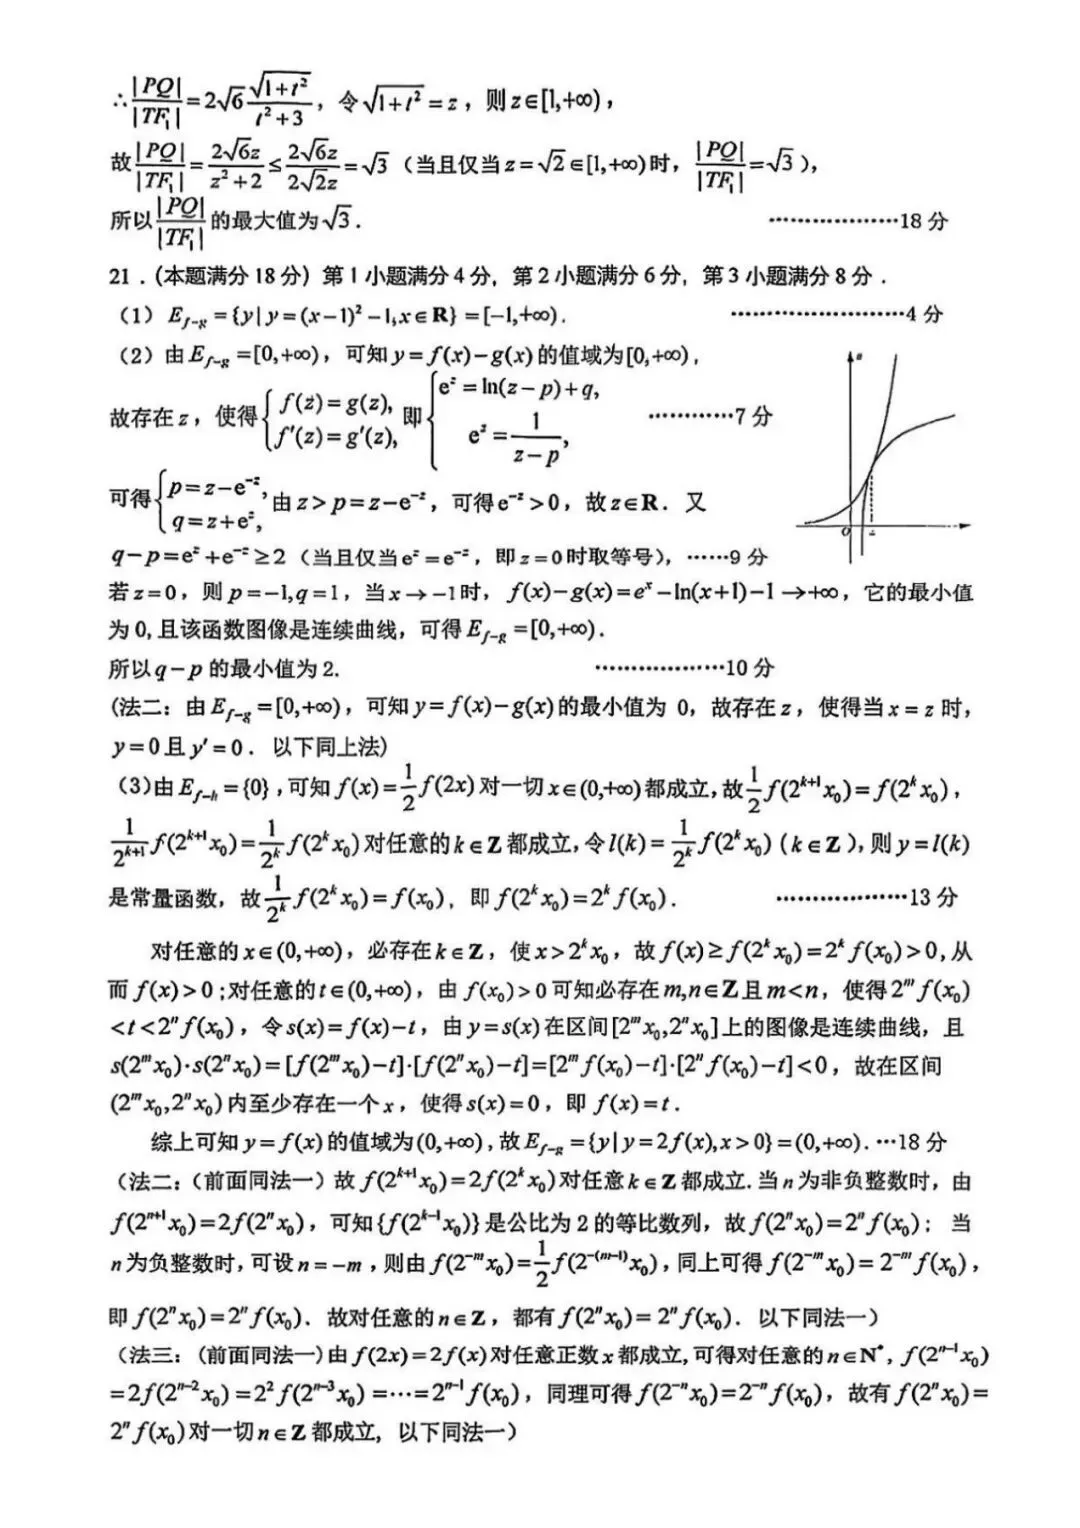 ∴|PQ|/|TF₁|=2√6·√(1+t²)/(t²+3)，令√(1+t²)=z，则z∈[1,+∞)，
故|PQ|/|TF₁|=2√6z/(z²+2)≤2√6z/(2√2z)=√3（当且仅当z=√2∈[1,+∞)时，|PQ|/|TF₁|=√3），
所以|PQ|/|TF₁|的最大值为√3． ··················18分
21．(本题满分18分）第1小题满分4分，第2小题满分6分，第3小题满分8分．
（1）E_{f-g}={y|y=(x-1)²-1,x∈R}=[-1,+∞)． ························4分
（2）由E_{f-g}=[0,+∞)，可知y=f(x)-g(x)的值域为[0,+∞)，
故存在z，使得{f(z)=g(z), f′(z)=g′(z), 即{e^z=ln(z-p)+q, e^z=1/(z-p), ············7分
可得{p=z-e^{-z}, q=z+e^z, 由z>p=z-e^{-z}，可得e^{-z}>0，故z∈R．又
q-p=e^z+e^{-z}≥2（当且仅当e^z=e^{-z}，即z=0时取等号)，······9分
O
若z=0，则p=-1,q=1，当x→-1时，f(x)-g(x)=e^x-ln(x+1)-1→+∞，它的最小值
为0,且该函数图像是连续曲线，可得E_{f-g}=[0,+∞)．
所以q-p的最小值为2. ··················10分
(法二：由E_{f-g}=[0,+∞)，可知y=f(x)-g(x)的最小值为 0，故存在z，使得当x=z时，
y=0且y′=0．以下同上法)
（3)由E_{f-h}={0},可知f(x)=1/2 f(2x)对一切x∈(0,+∞)都成立,故1/2 f(2^{k+1}x₀)=f(2^k x₀)，
1/2^{k+1} f(2^{k+1}x₀)=1/2^k f(2^k x₀)对任意的k∈Z都成立,令l(k)=1/2^k f(2^k x₀)（k∈Z）,则y=l(k)
是常量函数，故1/2^k f(2^k x₀)=f(x₀)，即f(2^k x₀)=2^k f(x₀)． ··················13分
对任意的x∈(0,+∞)，必存在k∈Z，使x>2^k x₀，故f(x)≥f(2^k x₀)=2^k f(x₀)>0,从
而f(x)>0;对任意的t∈(0,+∞)，由f(x₀)>0可知必存在m,n∈Z且m<n，使得2^m f(x₀)
<t<2^n f(x₀)，令s(x)=f(x)-t，由y=s(x)在区间[2^m x₀,2^n x₀]上的图像是连续曲线，且
s(2^m x₀)·s(2^n x₀)=[f(2^m x₀)-t]·[f(2^n x₀)-t]=[2^m f(x₀)-t]·[2^n f(x₀)-t]<0，故在区间
(2^m x₀,2^n x₀)内至少存在一个x，使得s(x)=0，即f(x)=t．
综上可知y=f(x)的值域为(0,+∞),故E_{f-g}={y|y=2f(x),x>0}=(0,+∞)．···18分
（法二:（前面同法一）故f(2^{k+1}x₀)=2f(2^k x₀)对任意k∈Z都成立.当n为非负整数时，由
f(2^{n+1}x₀)=2f(2^n x₀)，可知{f(2^{k-1}x₀)}是公比为2的等比数列，故f(2^n x₀)=2^n f(x₀)；当
n为负整数时,可设n=-m,则由f(2^{-m}x₀)=1/2 f(2^{-(m-1)}x₀),同上可得f(2^{-m}x₀)=2^{-m}f(x₀)，
即f(2^n x₀)=2^n f(x₀)．故对任意的n∈Z，都有f(2^n x₀)=2^n f(x₀)．以下同法一）
（法三：(前面同法一)由f(2x)=2f(x)对任意正数x都成立,可得对任意的n∈N*，f(2^{n-1}x₀)
=2f(2^{n-2}x₀)=2²f(2^{n-3}x₀)=···=2^{n-1}f(x₀)，同理可得f(2^{-n}x₀)=2^{-n}f(x₀)，故有f(2^n x₀)=
2^n f(x₀)对一切n∈Z都成立，以下同法一）